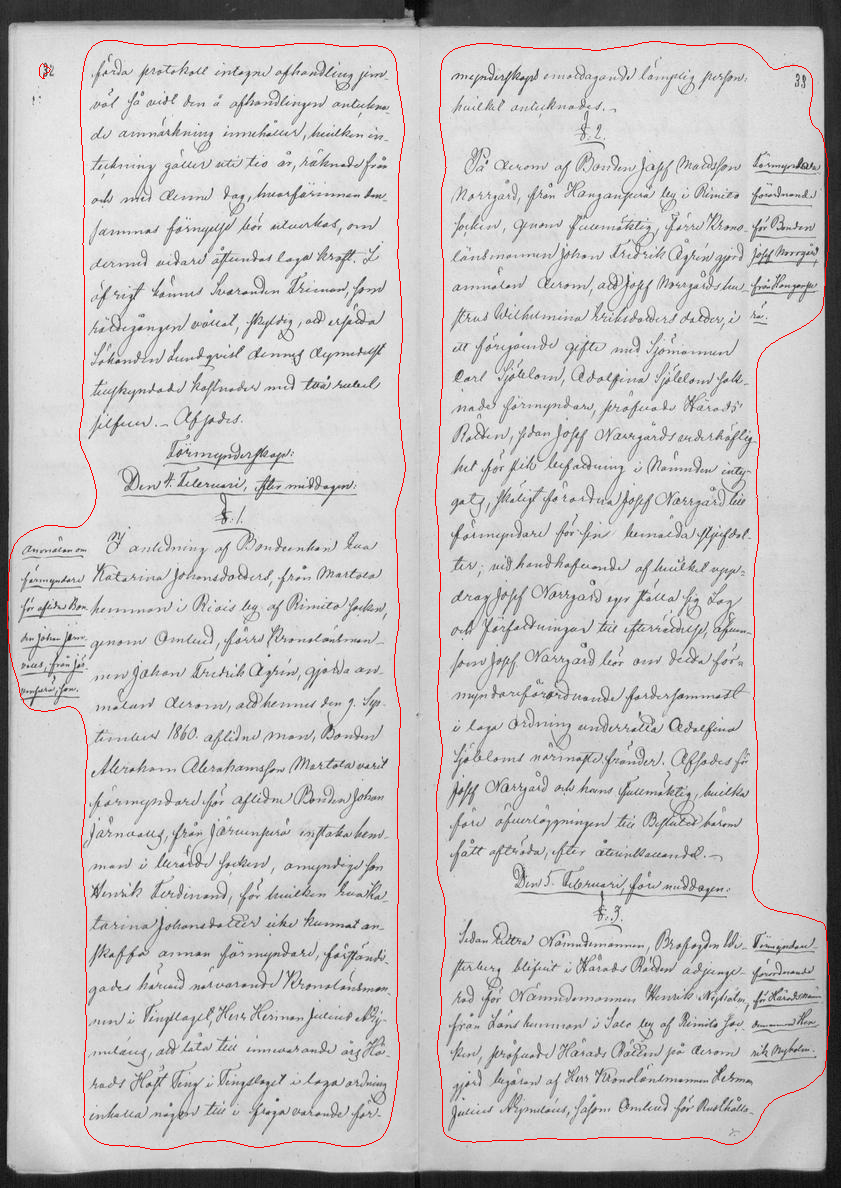 32
förda protokoll intagne afhandling jem-
väl så vidt den å afhandlingen anteckna-
de anmärkning innehåller, hvilken in-
teckning gäller uti tio år, räknade från
och med denne dag, hvarförinnan den-
sammas förnyelse bör utverkas, om
dermed vidare åstundas laga kraft. I
öfrigt kännes Svaranden Friman, som
rättegången vållat, skyldig, att ersätta
Sökanden Lundqvist dennes
kostnader med två rubel
silfver. - Afsades.
Förmynderskap:
Den 4. Februari, efter middagen:
§. 1.
Anmälan om
förmyndare
för aflidne Bon-
den Johan Järn-
valls, från Jär-
venperä, son.
I anledning af Bondeenkan Eva
Katarina Johansdotters, från Martola
hemman i Riois by af Rimito socken,
genom Ombud, förre Kronolänsman-
nen Johan Fredrik Ågrén, gjorda an-
mälan derom, att hennes den 9. Sep-
tember 1860 aflidne man, Bonden
Abraham Abrahamsson Martola varit
förmyndare för aflidne Bonden Johan
Järnvalls, från Järvenperä enstaka hem-
man i berörde socken, omyndige son
Henrik Ferdinand, för hvilken Eva Ka-
tarina Johansdotter icke kunnat an-
skaffa annan förmyndare, förständi-
gades härvid närvarande Kronolänsman-
nen i Tingslaget, Herr Herman Julius
att låta till innevarande års Hä-
rads Höst Ting i Tingslaget i laga ordning
inkalla någon till i fråga varande för-
33
mynderskaps emottagande lämplig person;
hvilket antecknades. -
§. 2.
Förmyndare
förordnande
för Bonden
Josef Norrgård,
från Hanganpe-
rä.
På derom af Bonden Josef Mattsson
Norrgård, från Hanganperä by i Rimito
socken, genom fullmäktig, förre Krono-
länsmannen Johan Fredrik Ågrén gjord
anmälan derom, att Josef Norrgårds hu-
strus Wilhelmina Eriksdotters dotter, i
ett föregående gifte med Sjömannen
Carl Sjöblom, Adolfina Sjöblom sak-
nade förmyndare, pröfvade Härads
Rätten, sedan Josef Norrgårds vederhäftig-
het för slik befattning i Nämnden inty-
gats, skäligt förordna Josef Norrgård till
förmyndare för sin bemälda styfdot-
ter; vid handhafvande af hvilket upp-
drag Josef Norrgård eger ställa sig Lag
och Författningar till efterrättelse, äfven-
som Josef Norrgård bör om detta för-
myndareförordnande fordersammast
i laga ordning underrätta Adolfina
Sjöbloms närmaste fränder. Afsades för
Josef Norrgård och hans fullmäktig, hvilka
före öfverläggningen till Beslutet härom
fått afträda, efter återinkallandet. -
Den 5. Februari, före middagen:
§. 3.
Förmyndare
förordnande
för Häradsnäm-
demannen Hen-
rik Nyholm.
Sedan äldra Nämndemannen, Brofogden We-
sterberg blifvit i Härads Rätten adjunge-
rad för Nämndemannen Henrik Nyholm,
från Läns hemman i Salo by af Rimito soc-
ken, pröfvade Härads Rätten på derom
gjord begäran af Herr Kronolänsmannen Herman
Julius såsom Ombud för Rusthålla-